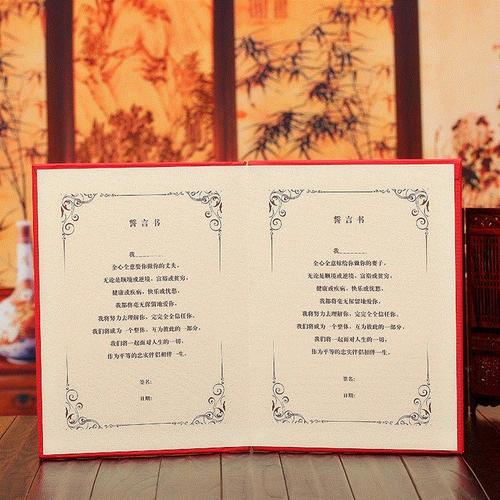 誓言书
我________
全心全意娶你做你的丈夫,
无论是顺境或逆境,富裕或贫穷,
健康或疾病,快乐或忧愁,
我都将毫无保留地爱你,
我将努力去理解你,完完全全信任你,
我们将成为一个整体,互为彼此的一部分,
我们将一起面对人生的一切,
作为平等的忠实伴侣相伴一生。
签名:
日期:
誓言书
我________
全心全意嫁给你做你的妻子,
无论是顺境或逆境,富裕或贫穷,
健康或疾病,快乐或忧愁,
我都将毫无保留地爱你,
我将努力去理解你,完完全全信任你,
我们将成为一个整体,互为彼此的一部分,
我们将一起面对人生的一切,
作为平等的忠实伴侣相伴一生。
签名:
日期: